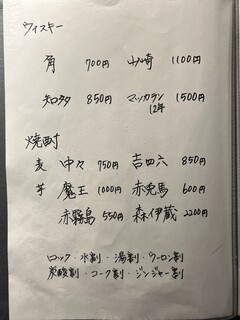 ウィスキー
角 700円 山崎 1100円
知多 850円 マッカラン 1500円
12年
焼酎
麦 中々 750円 吉四六 850円
芋 魔王 1000円 赤兎馬 600円
赤霧島 550円 森伊蔵 2200円
ロック・水割・湯割・ウーロン割
炭酸割・コーク割・ジンジャー割